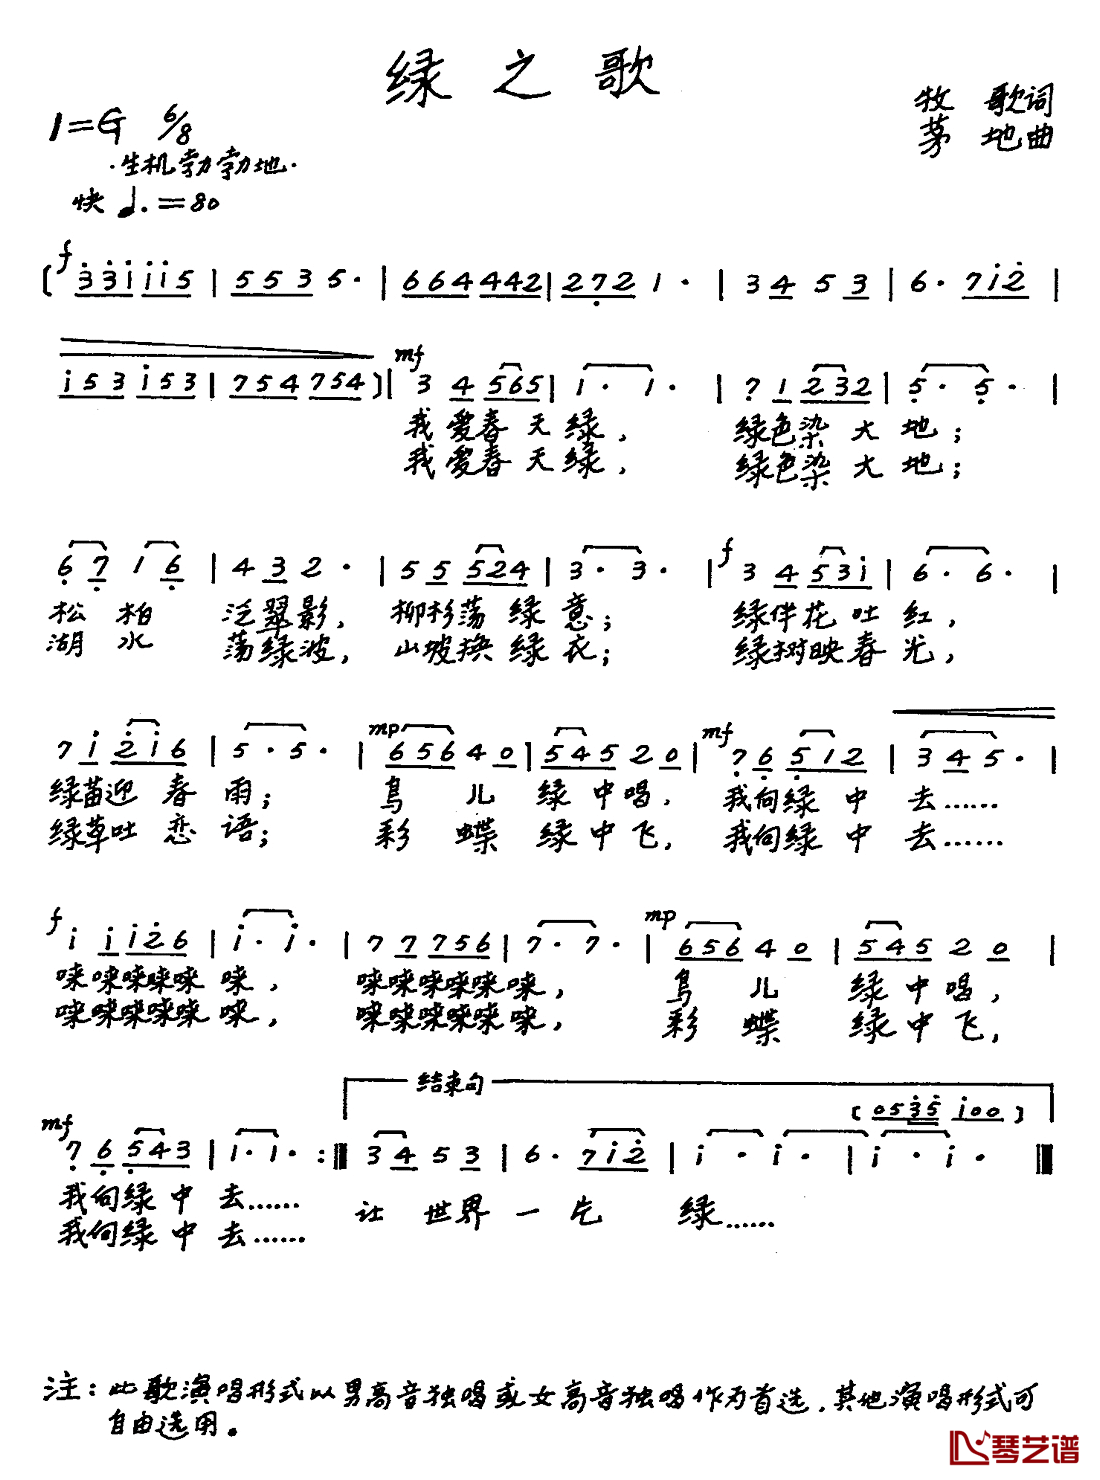 绿之歌
牧 歌词
茅 地曲
1=G 6/8
·生机勃勃地·
快 ♩.=80
f
( 3 3 1 1 1 5 | 5 5 3 5· | 6 6 4 4 4 2 | 2 7 2 1· | 3 4 5 3 | 6· 7 1 2 |
mf
1 5 3 1 5 3 | 7 5 4 7 5 4 ) | 3 4 5 6 5 | 1· 1· | 7 1 2 3 2 | 5· 5· |
我爱春天绿, 绿色染大地;
我爱春天绿, 绿色染大地;
f
6 7 1 6 | 4 3 2· | 5 5 5 2 4 | 3· 3· | 3 4 5 3 1 | 6· 6· |
松柏泛翠影, 柳杉荡绿意; 绿伴花吐红,
湖水荡绿波, 山坡换绿衣; 绿树映春光,
mp mf
7 1 2 1 6 | 5· 5· | 6 5 6 4 0 | 5 4 5 2 0 | 7 6 5 1 2 | 3 4 5· |
绿苗迎春雨; 鸟儿绿中唱, 我向绿中去……
绿草吐恋语; 彩蝶绿中飞, 我向绿中去……
f mp
1 1 1 2 6 | 1· 1· | 7 7 7 5 6 | 7· 7· | 6 5 6 4 0 | 5 4 5 2 0 |
唻唻唻唻唻唻, 唻唻唻唻唻唻, 鸟儿绿中唱,
唻唻唻唻唻唻, 唻唻唻唻唻唻, 彩蝶绿中飞,
结束句
( 0 5 3 5 1 0 0 )
mf
7 6 5 4 3 | 1· 1· :| 3 4 5 3 | 6· 7 1 2 | 1· 1· | 1· 1· ||
我向绿中去…… 让世界一片绿……
我向绿中去……
注:此歌演唱形式以男高音独唱或女高音独唱作为首选,其他演唱形式可
自由选用。
琴艺谱